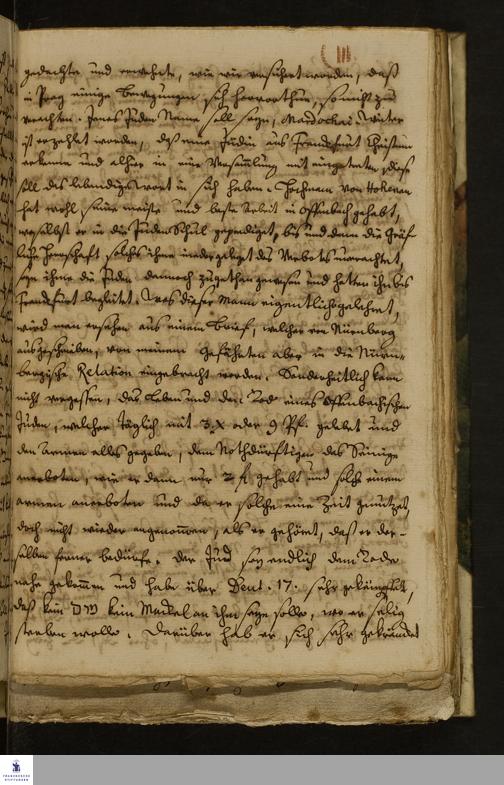 gedachte und erwehnte, wie wir versichert worden, daß
in Prag einige Bewegungen sich hervorthun, so nicht zu
verachten. Jenes Juden Name soll seyn, Mardochai. Weiter
ist erzehlet worden, daß eine Jüdin aus Franckfurt Christum
erkenne und alhier in eine Versamlung mit eingetreten, diese
soll das lebendige Wort in sich haben. Hochmann von Hohenau
hat wohl seine meiste und beste Arbeit in Offenbach gehabt,
woselbst er in die Juden Schul geprediget, bis und dann die Gräf-
liche Herrschaft solches ihme niedergeleget des Verbots unerachtet,
seyn ihme die Juden dennoch zugethan gewesen und hatten ihn bis
Franckfurt begleitet. Was dieser Mann eigentlich gelehret,
wird man ersehen aus einem Brief, welcher von Nürnberg
ausgeschrieben, von meinem Gefährten aber in die Nürn-
bergische Relation eingebracht worden. Sonderheitlich kann
nicht vergessen, das Leben und den Tod eines Offenbachischen
Juden, welcher täglich mit 3. X oder 9 Pf. gelebet und
den Armen alles gegeben, dem Nothdürftigen das Seinige
anerboten, wie er dann nur 2 fl gehabt und solche einem
armen anerboten und da er solche eine Zeit genutzet,
doch nicht wieder angenommen, als er gehöret, daß er der-
selben ferner bedürfe. Der Jud sey endlich dem Tode
nahe gekommen und habe über Deut. 17. sehr gekämpfet,
daß kein מום kein Mackel an ihm seyn solle, wo er selig
sterben wolle. Darüber hab er sich sehr gekränckt
FRANCKESCHE
STIFTUNGEN